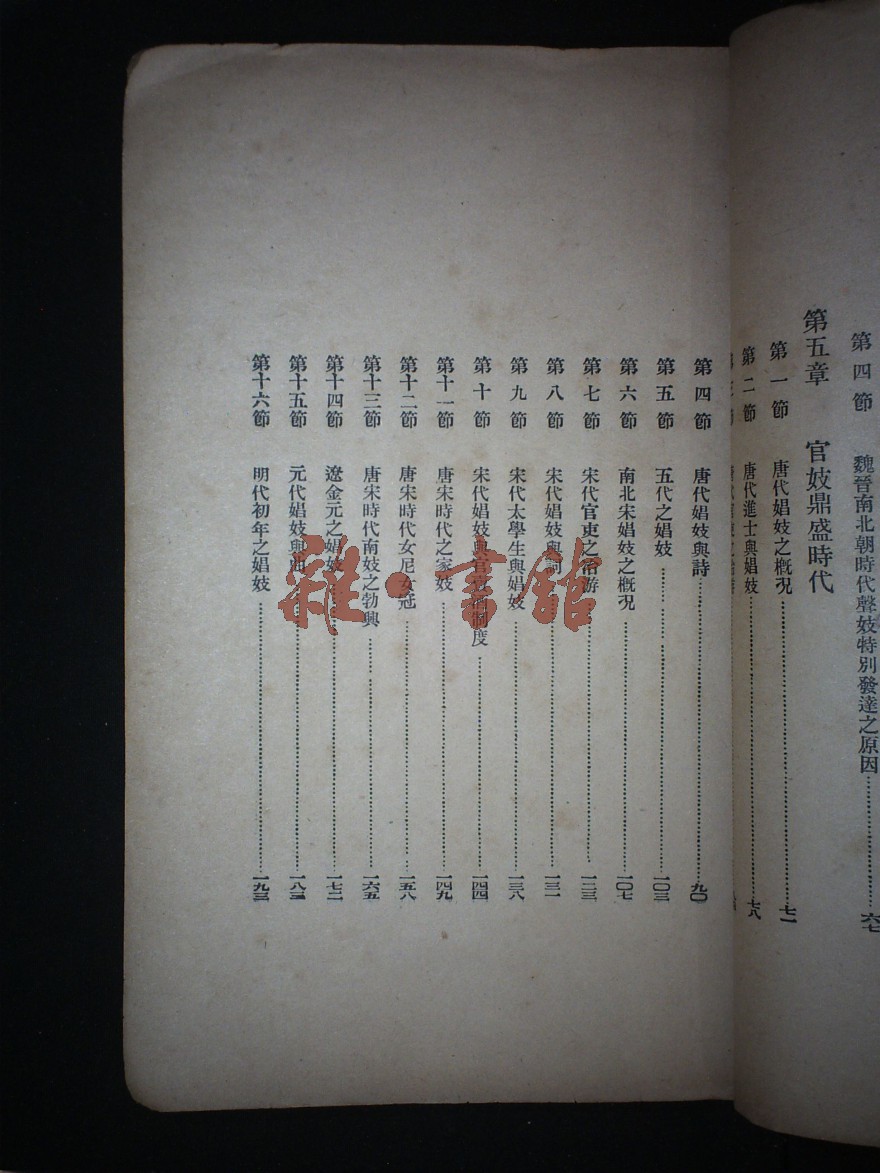 第四節 魏晉南北朝時代聲妓特別發達之原因 六七
第五章 官妓鼎盛時代
第一節 唐代娼妓之概况 七一
第二節 唐代進士與娼妓 七八
第四節 唐代娼妓與詩 九〇
第五節 五代之娼妓 一〇三
第六節 南北宋娼妓之概况 一〇七
第七節 宋代官吏之冶游 一二三
第八節 宋代娼妓與詞 一三一
第九節 宋代太學生與娼妓 一三八
第十節 宋代娼妓與官賣酒制度 一四四
第十一節 唐宋時代之家妓 一四九
第十二節 唐宋時代女尼女冠 一五八
第十三節 唐宋時代南妓之勃興 一六五
第十四節 遼金元之娼妓 一七二
第十五節 元代娼妓與曲 一八三
第十六節 明代初年之娼妓 一九三
雜·書館